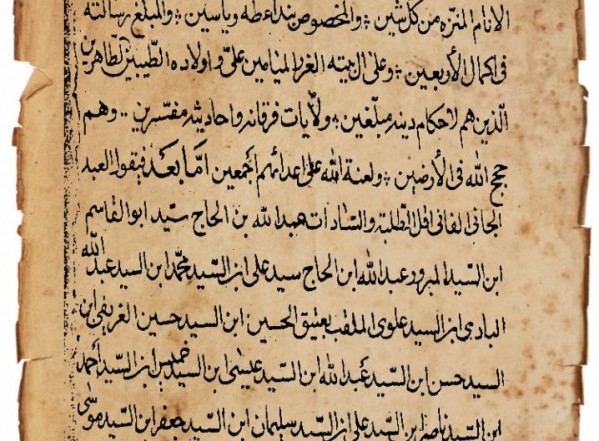 الانام المنزه من كل شين والمخصوص بنداء طه وياسين والمبلغ رسالته
فى اكمال الأربعين وعلى ال بيته الغر الميامين على واولاده الطيبين الطاهرين
الذين هم لاحكام دينه مبلغين ولآيات فرقانه واحاديثه مفسرين وهم
حجج الله فى الأرضين ولعنة الله على اعدائهم اجمعين امّا بعد فيقول العبد
الجانى الفانى اقل الطلبة والسادات هبد الله بن الحاج سيد ابو القاسم
ابن السيد المبرور عبد الله ابن الحاج سيد على ابن السيد محمد ابن السيد عبد الله
البلادى ابن السيد علوى الملقب بعتيق الحسين ابن السيد حسين الغريفى ابن
السيد حسن ابن السيد عبد الله ابن السيد عيسى ابن السيد خميس ابن السيد احمد
ابن السيد ناصر ابن السيد على ابن السيد سليمان ابن السيد جعفر ابن السيد موسى